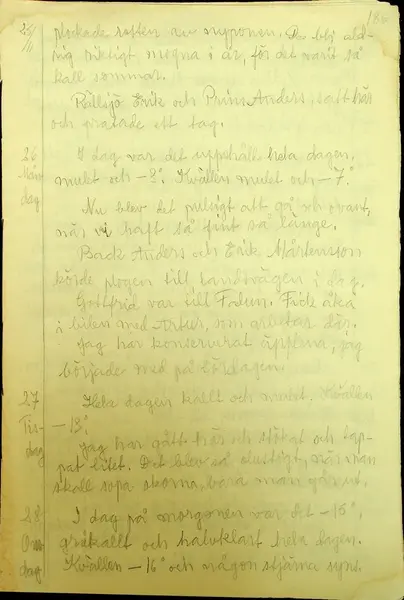 186
25/11 plockade resten av nyponen. De blj ald-
rig riktigt mogna i år, för det varit så
kall sommar.
Rällsjö Erik och Prins Anders, satt här
och pratade ett tag.
26 I dag var det uppehåll hela dagen,
Mån mulet och -2°. Kvällen mulet och -7°.
dag Nu blev det pulsigt att gå och svart,
när vi haft så fint så länge.
Back Anders och Erik Mårtensson
körde plogen till landsvägen i dag.
Gottfrid var till Falun. Fick åka
i bilen med Artur, som arbetar där.
Jag har konserverat äpplena, jag
började med på lördagen.
27 Hela dagen kallt och mulet. Kvällen
Tis- -13°.
dag Jag har gått här och stökat och lap-
pat litet. Det blev så olustigt, när man
skall sopa skorna, bara man går ut.
28 I dag på morgonen var det -15°,
Ons gråkallt och halvklart hela dagen.
dag Kvällen -16° och någon stjärna syns.